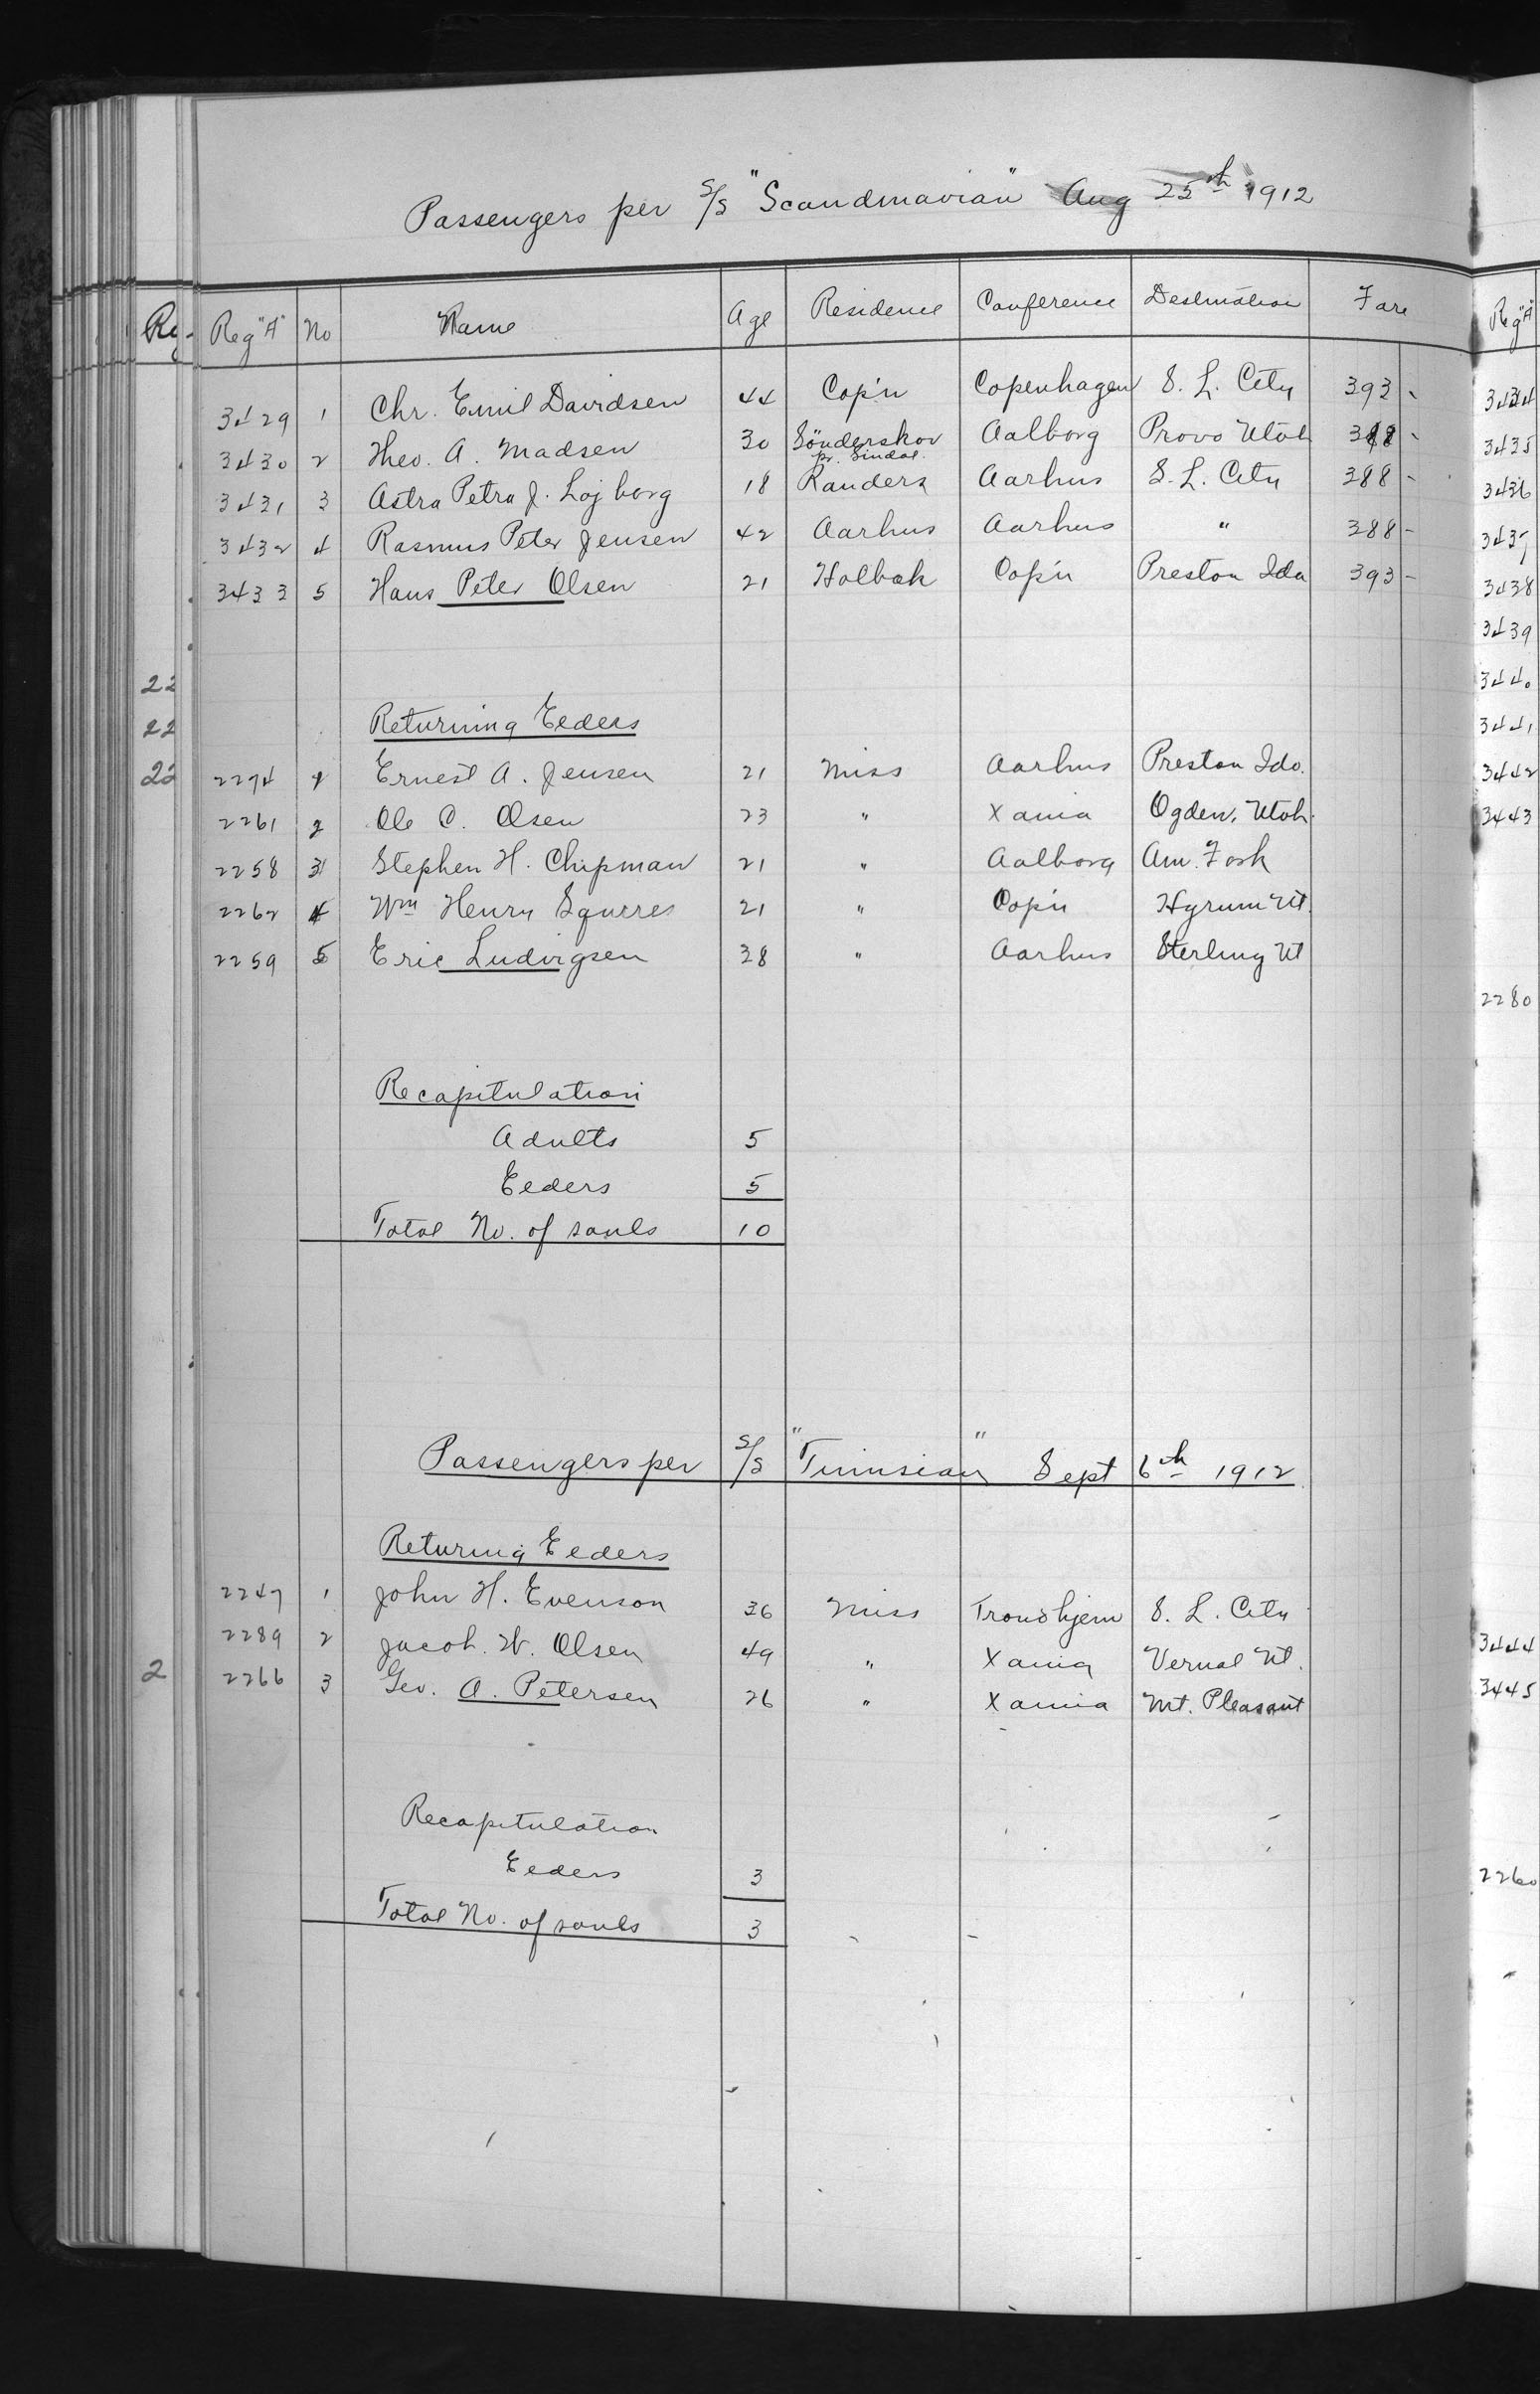 Passengers per S/S "Scandinavian" Aug 25th 1912
Reg "A" No Name Age Residence Conference Destination Fare
3429 1 Chr. Emil Davidsen 44 Cop'n Copenhagen S. L. City 393 -
3430 2 Theo. A. Madsen 30 Sönderskov Aalborg Provo Utah -
pr. Sindal.
3431 3 Astra Petra J. Lojborg 18 Randers Aarhus S. L. City 288 -
3432 4 Rasmus Peter Jensen 42 Aarhus Aarhus " 288 -
3433 5 Hans Peter Olsen 21 Holbak Cop'n Preston Ida 393 -
Returning Elders
2274 1 Ernest A. Jensen 21 Miss Aarhus Preston Ido.
2261 2 Ole C. Olsen 23 " Xania Ogden, Utah.
2258 3 Stephen H. Chipman 21 " Aalborg Am. Fork
2262 4 Wm Henry Squires 21 " Cop'n Hyrum Ut.
2259 5 Eric Ludvigsen 38 " Aarhus Sterling Ut
Recapitulation
Adults 5
Elders 5
Total No. of souls 10
Passengers per S/S "Tunisian" Sept 6th 1912
Returnig Elders
2247 1 John H. Evenson 36 Miss Trondhjem S. L. City
2289 2 Jacob. W. Olsen 49 " Xania Vernal Ut.
2266 3 Geo. A. Petersen 26 " Xania Mt. Pleasant
Recapitulation
Elders 3
Total No. of souls 3
Reg.
22
22
22
2
Reg "A"
3434
3435
3436
3437
3438
3439
3440
3441
3442
3443
2280
3444
3445
2260